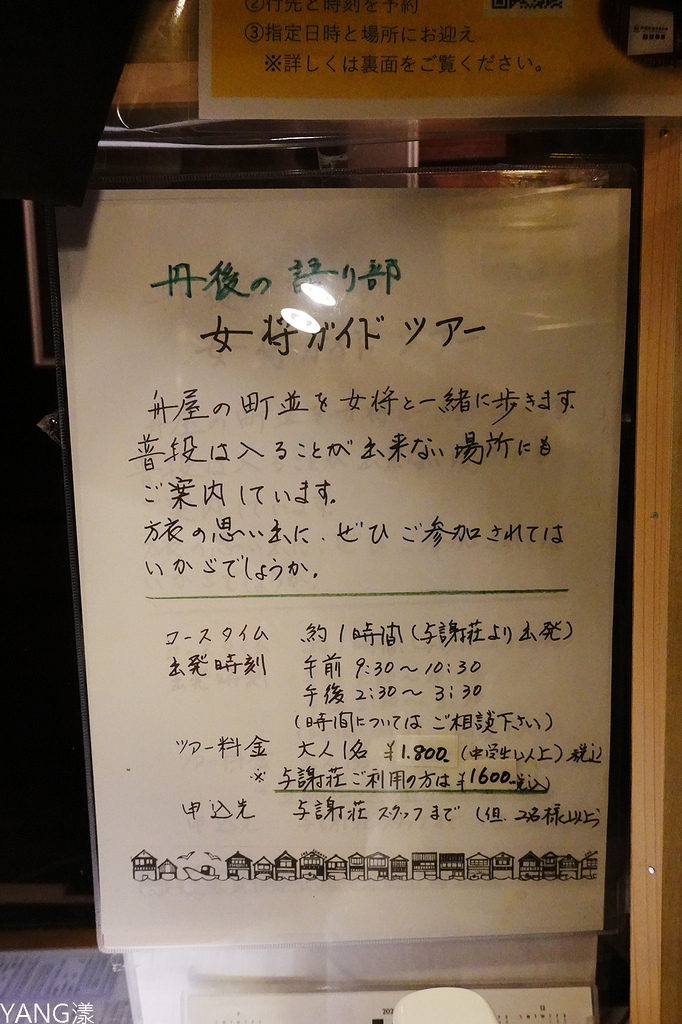 ②行先と時刻を予約
③指定日時と場所にお迎え
※詳しくは裏面をご覧ください。
丹後の語り部
女将ガイドツアー
舟屋の町並を女将と一緒に歩きます.
普段は入ることが出来ない場所にも
ご案内しています.
方衣の思い出に、ぜひご参加されては
いかがでしょうか.
コースタイム 約1時間(与謝荘より出発)
出発時刻 午前 9:30～10:30
午後 2:30～3:30
(時間についてはご相談下さい)
ツアー料金 大人1名 ¥1.800. (中学生以上) 税込
※ 与謝荘ご利用の方は¥1600-税込)
申込先 与謝荘 スタッフまで (但、2名様以上)
YANG漾